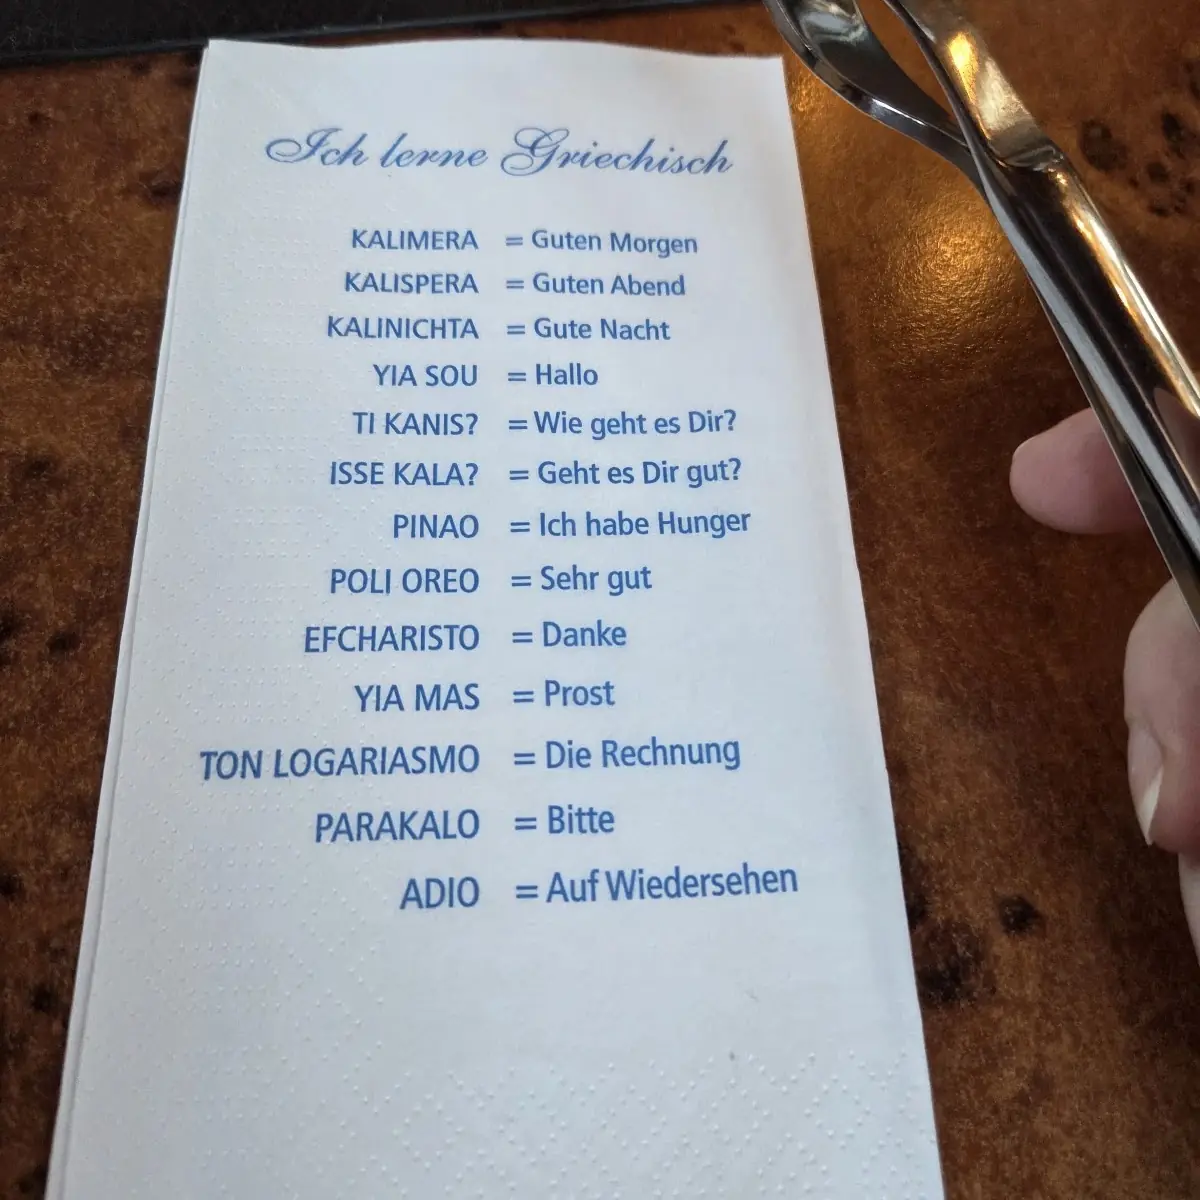 Ich lerne Griechisch
KALIMERA = Guten Morgen
KALISPERA = Guten Abend
KALINICHTA = Gute Nacht
YIA SOU = Hallo
TI KANIS? = Wie geht es Dir?
ISSE KALA? = Geht es Dir gut?
PINAO = Ich habe Hunger
POLI OREO = Sehr gut
EFCHARISTO = Danke
YIA MAS = Prost
TON LOGARIASMO = Die Rechnung
PARAKALO = Bitte
ADIO = Auf Wiedersehen